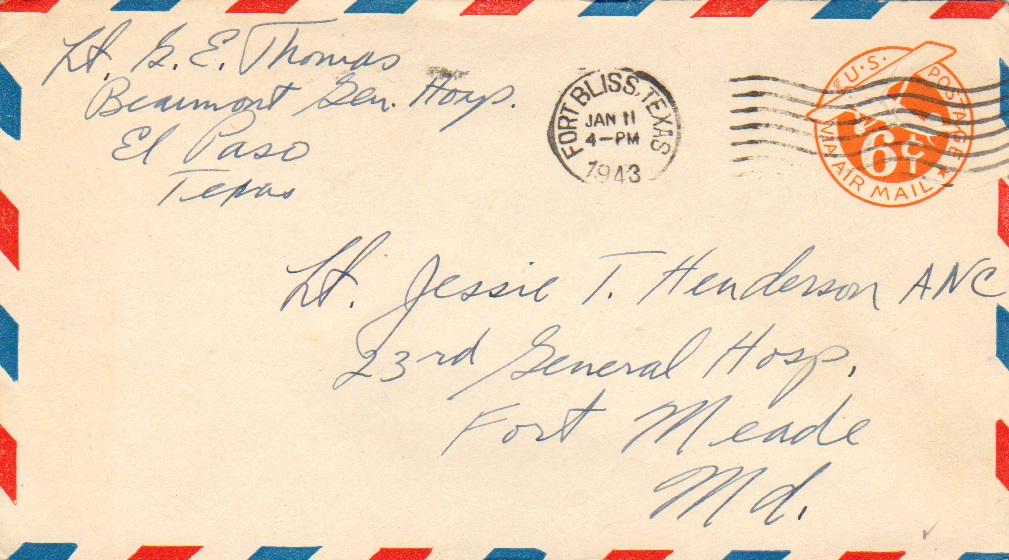 Lt. G. E. Thomas
Beaumont Gen. Hosp.
El Paso
Texas
FORT BLISS, TEXAS
JAN 11
4-PM
1943
U.S. POSTAGE
6¢
VIA AIR MAIL
Lt. Jessie T. Henderson ANC
23rd General Hosp.
Fort Meade
Md.